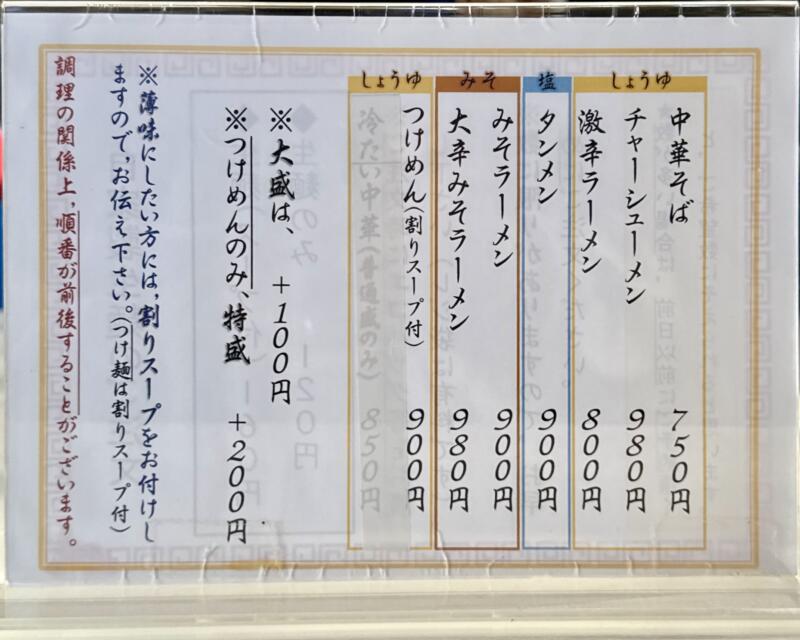 しょうゆ
中華そば 750円
チャーシューメン 980円
激辛ラーメン 800円
塩
タンメン 900円
みそ
みそラーメン 900円
大辛みそラーメン 980円
しょうゆ
つけめん(割りスープ付) 900円
冷たい中華(普通盛のみ) 850円
※大盛は、 +100円
※つけめんのみ、特盛 +200円
※薄味にしたい方には,割りスープをお付けし
ますので,お伝え下さい。(つけ麺は割りスープ付)
調理の関係上,順番が前後することがございます。